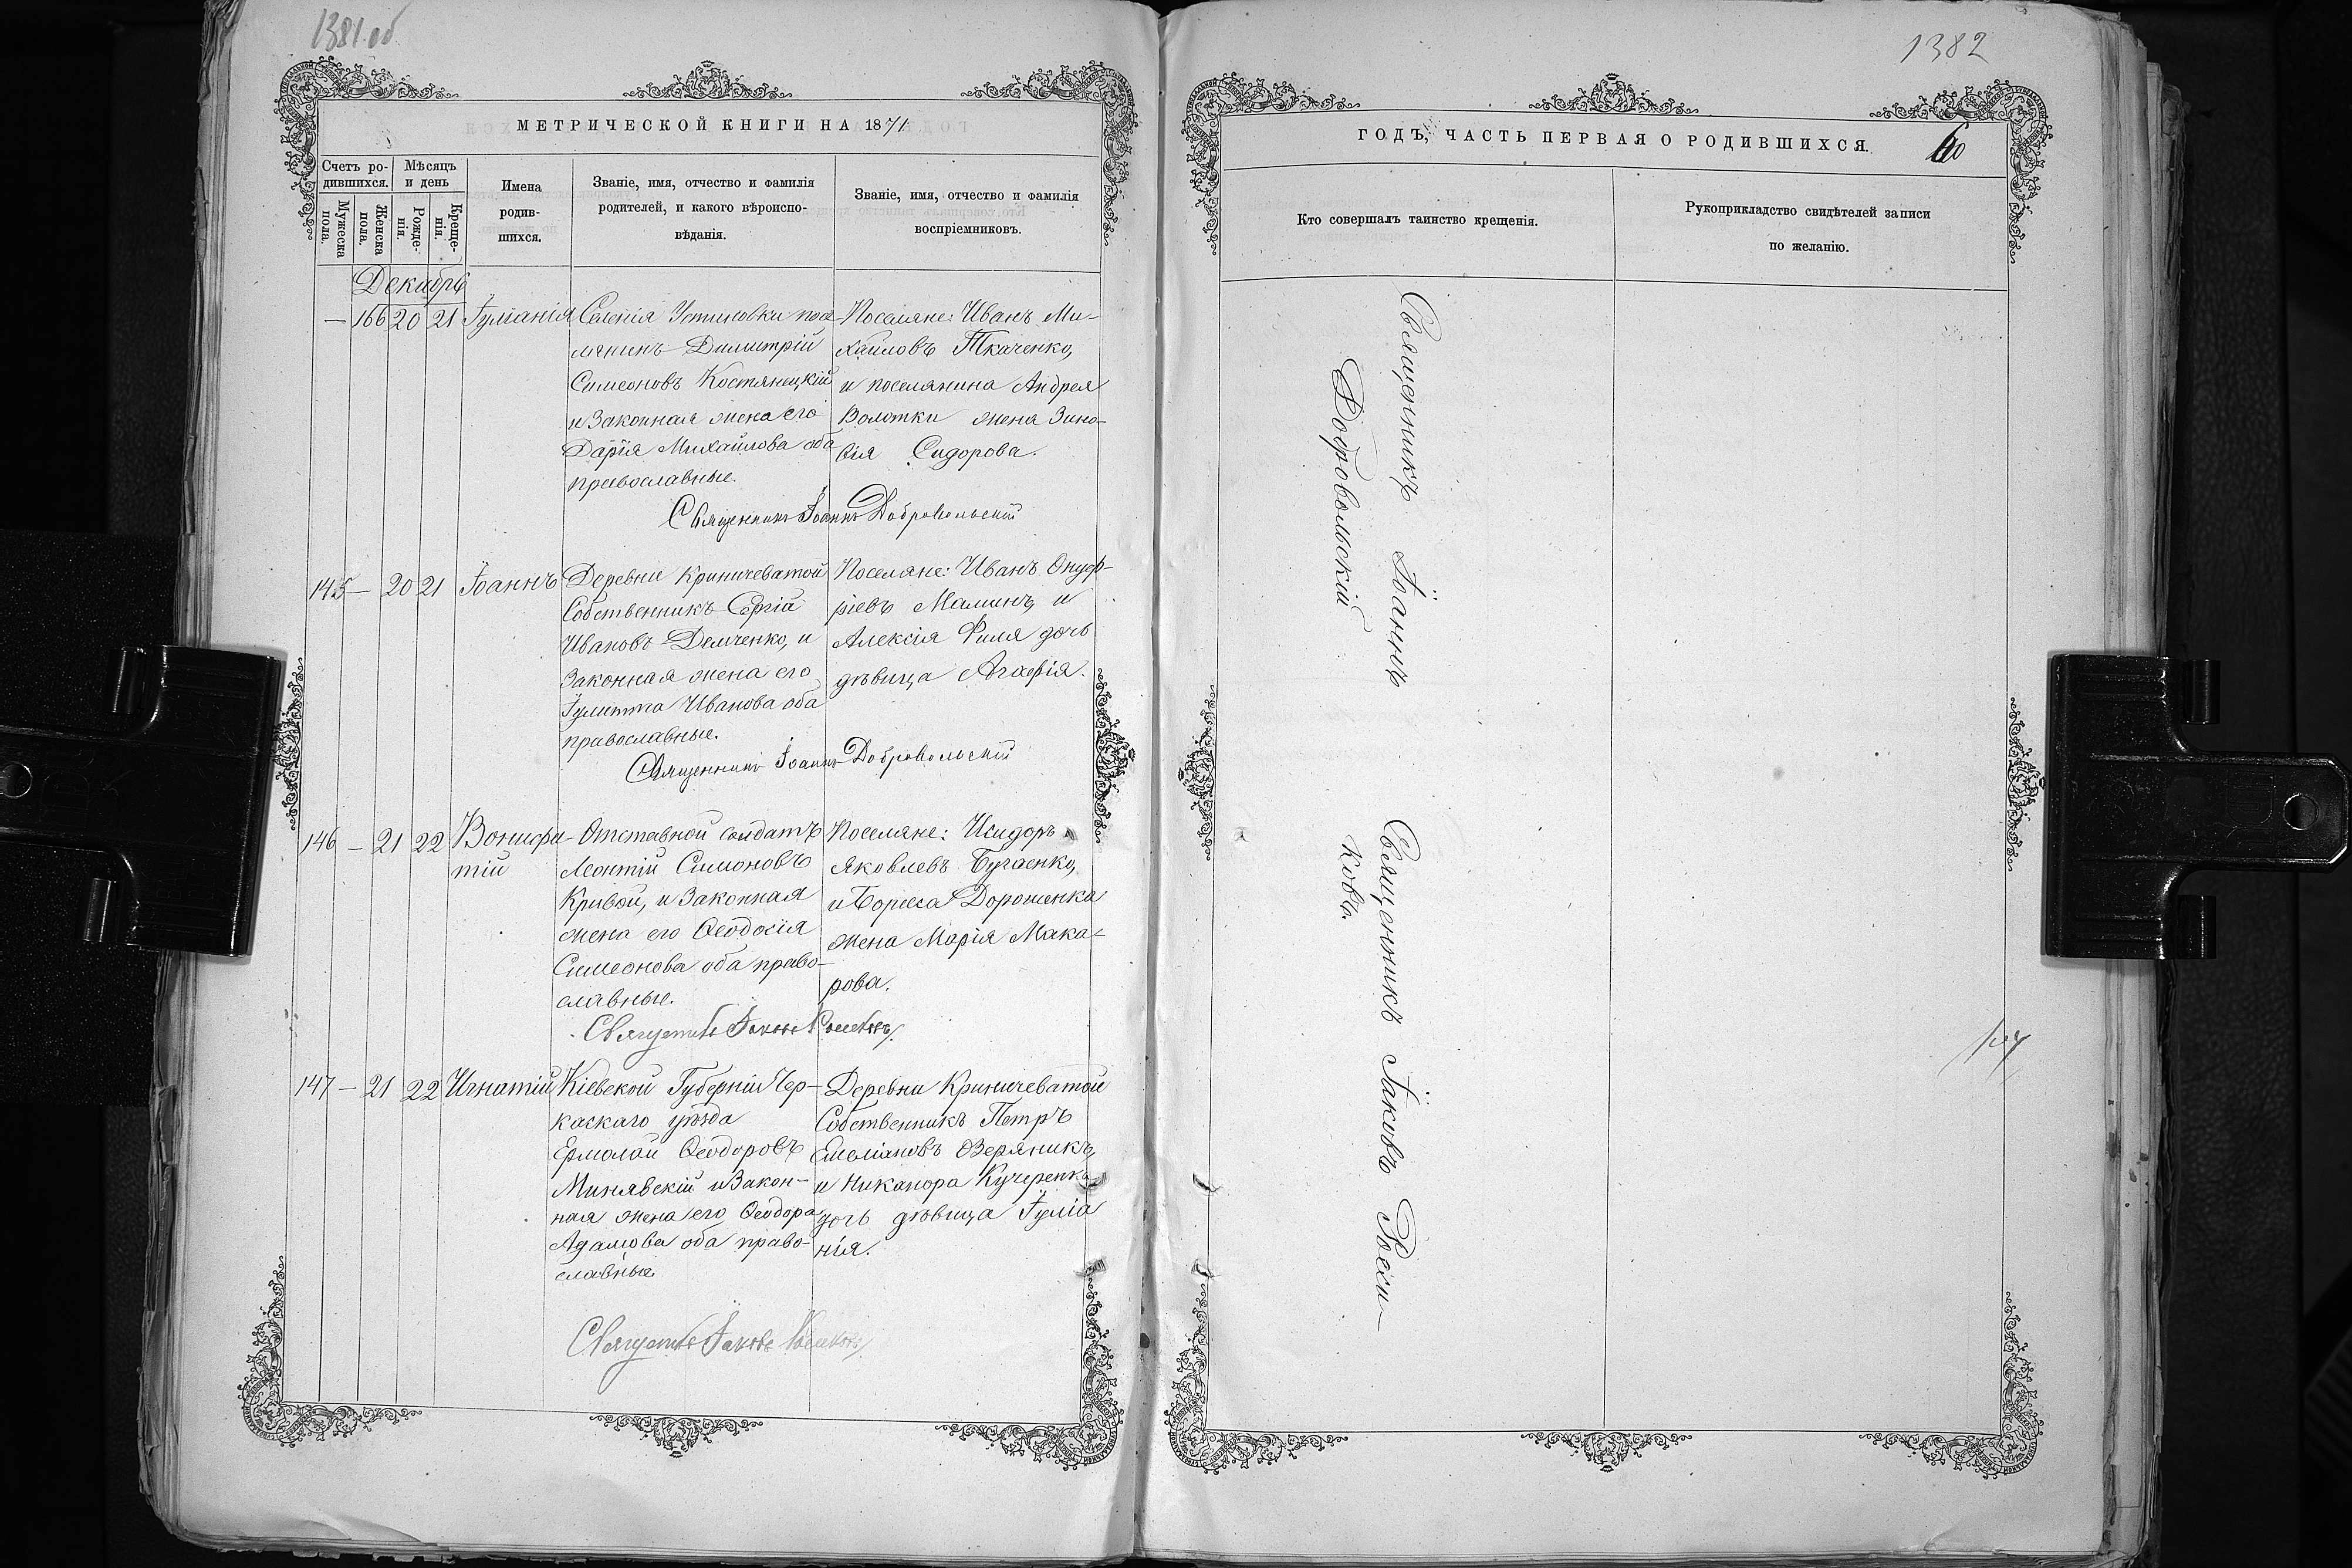 1381 об
МЕТРИЧЕСКОЙ КНИГИ НА 1871
Счетъ ро-
дившихся.
Мѣсяцъ
и день
Мужеска
пола.
Женска
пола.
Рожде-
нія.
Креще-
нія.
Имена
родив-
шихся.
Званіе, имя, отчество и фамилія
родителей, и какого вѣроиспо-
вѣданія.
Званіе, имя, отчество и фамилія
воспріемниковъ.
Декабрь
— 166 20 21 Іуліанія
Селенія Устиновки посе-
лянинъ Димитрій
Симеоновъ Костянецкій
и Законная жена его
Дарія Михайлова оба
православные.
Поселяне: Иванъ Ми-
хайловъ Ткаченко,
и поселянина Андрея
Волотки жена Зино-
вія Сидорова.
Священникъ Іоаннъ Добровольскій
145 — 20 21 Іоаннъ
Деревни Криничеватой
Собственникъ Сергій
Ивановъ Демченко, и
Законная жена его
Іулитта Иванова оба
православные.
Поселяне: Иванъ Онуф-
ріевъ Маминъ, и
Алексія Филя дочь
дѣвица Агафія.
Священникъ Іоаннъ Добровольскій
146 — 21 22 Вонифа-
тій
Отставной солдатъ
Леонтій Симоновъ
Кривой, и Законная
жена его Ѳеодосія
Симеонова оба право-
славные.
Поселяне: Исидоръ
Яковлевъ Бугаенко,
и Бориса Дорошенка
жена Марія Мака-
рова.
147 — 21 22 Игнатій
Кіевской Губерніи Чер-
каскаго уѣзда
Ермолай Ѳеодоровъ
Минявскій и Закон-
ная жена его Ѳеодора
Адамова оба право-
славные
Деревни Криничеватой
Собственникъ Петръ
Емеліановъ Озеряникъ,
и Никанора Кучеренка
дочь дѣвица Іуліа
нія.
1382
ГОДЪ, ЧАСТЬ ПЕРВАЯ О РОДИВШИХСЯ.
60
Кто совершалъ таинство крещенія.
Рукоприкладство свидѣтелей записи
по желанію.
Священникъ Іоаннъ
Добровольскій
Священникъ Іаковъ Росси-
ковъ.